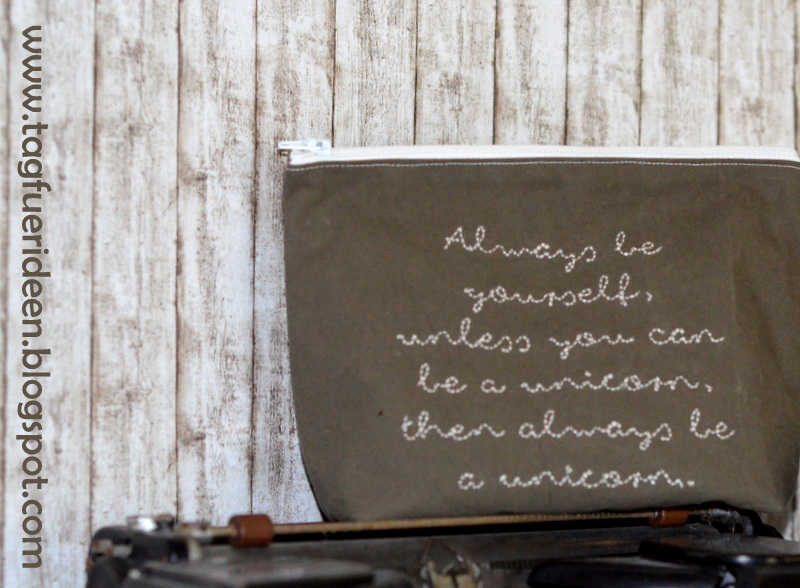 www.tagfuerideen.blogspot.com
Always be
yourself,
unless you can
be a unicorn,
then always be
a unicorn.